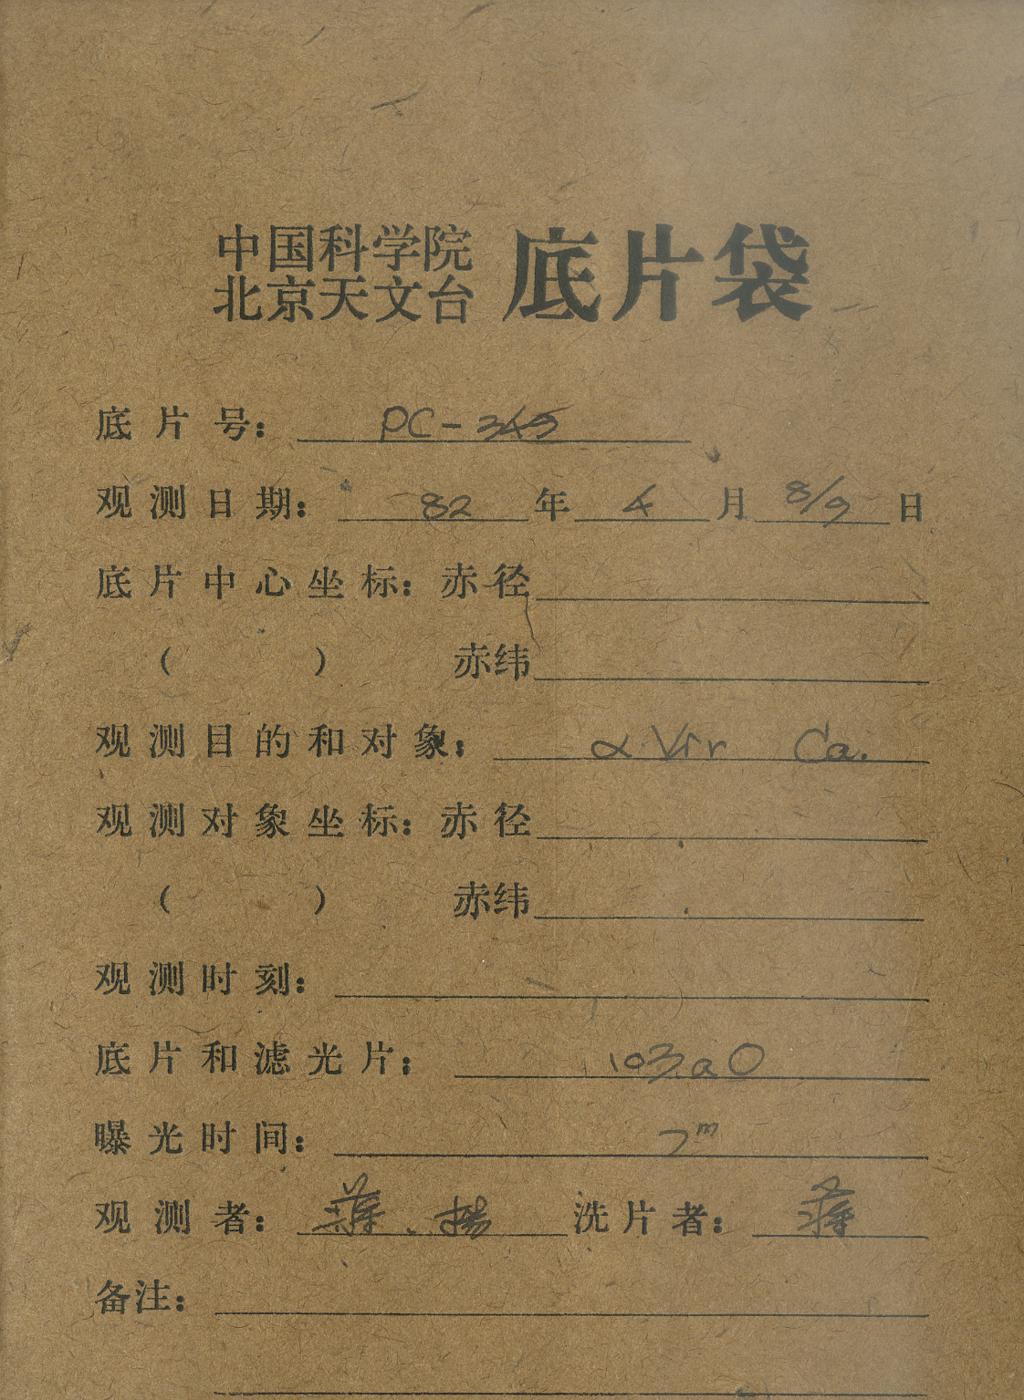 中国科学院
北京天文台
底片袋
底片号： PC-345
观测日期： 82 年 4 月 8/9 日
底片中心坐标：赤径
（ ） 赤纬
观测目的和对象： α Vir Ca.
观测对象坐标：赤径
（ ） 赤纬
观测时刻：
底片和滤光片： 103aO
曝光时间： 7m
观测者： 蒋、杨 洗片者： 蒋
备注：